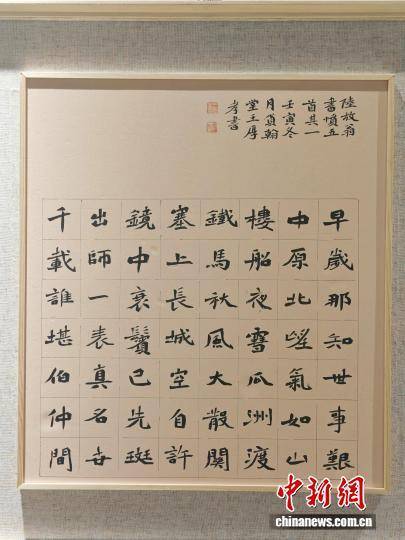 陸放翁
書憤五
首其一
壬寅冬
月翰
堂王厚
孝書
早歲那知世事艱
中原北望氣如山
樓船夜雪瓜洲渡
鐵馬秋風大散關
塞上長城空自許
鏡中衰鬢已先斑
出師一表真名世
千載誰堪伯仲間
中新網
chinanews.com.cn